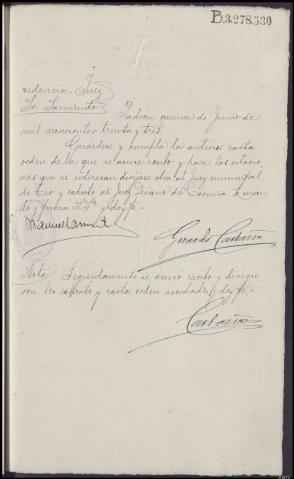 B.3.278.530
videncia-Juez
Sr. Sarmiento
Padrón quince de Junio de
mil novecientos treinta y tres.
Guárdese y cumpla la anterior carta
orden de la que se acuse recibo y para las citacio
nes que se interesan diríjase otra al Juez municipal
de Teo y exhorto al Juez Decano de Coruña. Lo man
dó y firma S.Sª y doy fé.
Gerardo Castaño
Nota. Seguidamente se acusó recibo y dirigie
ron los exhorto y carta orden acordados, doy fé.-
Castaño